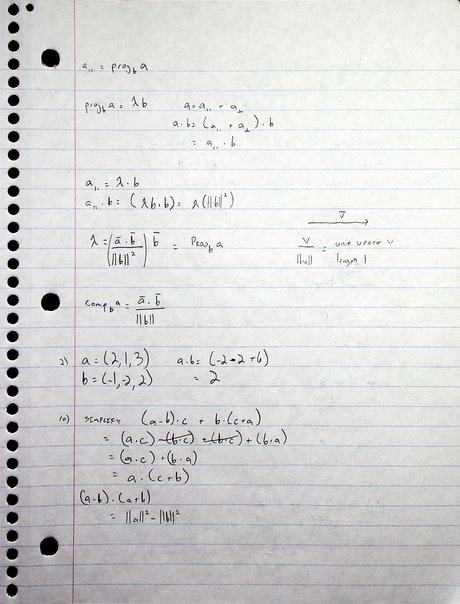 a₁₁ = proj_b a
proj_b a = λb    a = a₁₁ + a⊥
a·b = (a₁₁ + a⊥)·b
= a₁₁·b
a₁₁ = λ·b
a₁₁·b = (λb·b) = λ(||b||²)
v
λ = (ā·b̄ / ||b||²) b̄ = Proj_b a    v/||v|| = unit vector v
length 1
comp_b a = ā·b̄ / ||b||
2) a = (2,1,3)    a·b = (-2-2+6)
b = (-1,-2,2)    = 2
10) SIMPLIFY (a-b)·c + b·(c+a)
= (a·c) -(b·c) +(b·c) + (b·a)
= (a·c) + (b·a)
= a·(c+b)
(a-b)·(a+b)
= ||a||² - ||b||²